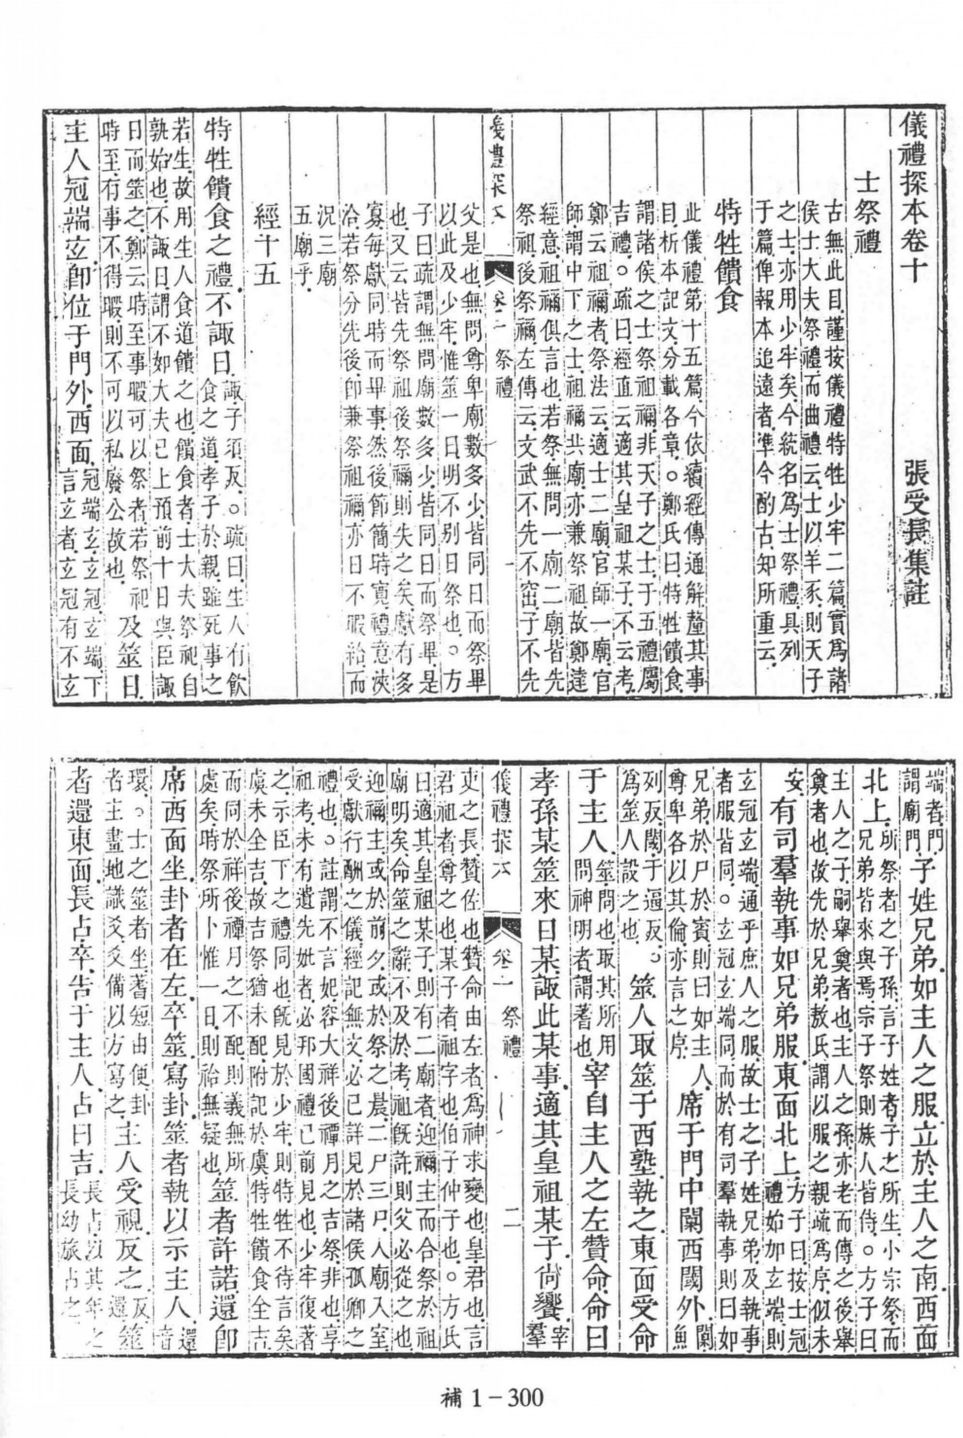 儀禮探本卷十
張受長集註
士祭禮
古無此目謹按儀禮特牲少牢二篇貫爲諸
侯士大夫祭禮而曲禮云士以羊豕則天子
之士亦用少牢矣今統名爲士祭禮具列
于篇俾報本追遠者準今酌古知所重云
特牲饋食
此儀禮第十五篇今依續經傳通解釐其事
目析本記文分載各章。鄭氏曰特牲饋食
謂諸侯之士祭祖禰非天子之士于五禮屬
吉禮。疏曰經直云適其皇祖某子不云考
鄭云祖禰者祭法云適士二廟官師一廟官
師謂中下之士祖禰共廟亦兼祭祖故鄭達
經意祖禰俱言也若祭無問一廟二廟皆先
祭祖後祭禰左傳云文武不先不窋子不先
儀禮探本
卷二
祭禮
一
父是也無問尊卑廟數多少皆同日而祭畢
以此及少牢惟筮一日明不别日祭也。方
子曰疏謂無問廟數多少皆同日而祭畢是
也又云皆先祭祖後祭禰則失之矣獻有多
寡每獻同時而畢事然後節簡時寬禮意浹
洽若祭分先後卽兼祭祖禰亦日不暇給而
況三廟
五廟乎
經十五
特牲饋食之禮不諏日諏子須反。○疏曰生人有飲
食之道孝子於親雖死事之
若生故用生人食道饋之也饋食者士大夫祭祀自
孰始也不諏日謂不如大夫已上預前十日與臣諏
日而筮之鄭云時至事暇可以祭者若祭祀
時至有事不得暇則不可以私廢公故也及筮日
主人冠端玄卽位于門外西面冠端玄玄冠玄端下
言玄者玄冠有不玄
端者門
謂廟門子姓兄弟如主人之服立於主人之南西面
北上所祭者之子孫言子姓者子之所生小宗祭而
兄弟皆來與焉宗子祭則族人皆侍。方子曰
主人之子嗣舉奠者也主人之孫亦老而傳之後舉
奠者也故先於兄弟敖氏謂以服之親疏爲序似未
安有司羣執事如兄弟服東面北上方子曰按士冠
禮始加玄端則
玄冠玄端通乎庶人之服故士之子姓兄弟及執事
者服皆同。玄冠玄端同而於有司羣執事則曰如
兄弟於尸於賓則曰如主人
尊卑各以其倫亦言之序席于門中闑西閾外闑魚
列反閾于逼反。
爲筮人設之也筮人取筮于西塾執之東面受命
于主人筮問也取其所用
問神明者謂蓍也宰自主人之左贊命命曰
孝孫某筮來日某諏此某事適其皇祖某子尚饗宰
羣
儀禮探本
卷二
祭禮
二
吏之長贊佐也贊命由左者爲神求變也皇君也言
君祖者尊之也某子者祖字也伯子仲子也。方氏
曰適其皇祖某子則有二廟者迎禰主而合祭於祖
廟明矣命筮之辭不及於考祖旣許則父必從之也
迎禰主或於前夕或於祭之晨二尸三尸人廟入室
受獻行酬之儀經記無文必已詳見於諸侯孤卿之
禮也。註謂不言妃容大祥後禫月之吉祭非也享
祖考未有遺先妣者必邦國禮已前見也少牢復著
之示臣下之禮同也旣見於少牢則特牲不待言矣
虞未全吉故吉祭猶未配附記於虞特牲饋食全吉
而同於祥後禫月之不配則義無所
處矣時祭所卜惟一日則祫無疑也筮者許諾還卽
席西面坐卦者在左卒筮寫卦筮者執以示主人還
音
環。○士之筮者坐蓍短由便卦
者主畫地識爻爻備以方寫之主人受視反之反
還筮
者還東面長占卒告于主人占曰吉長占以其年之
長幼旅占之
補1-300